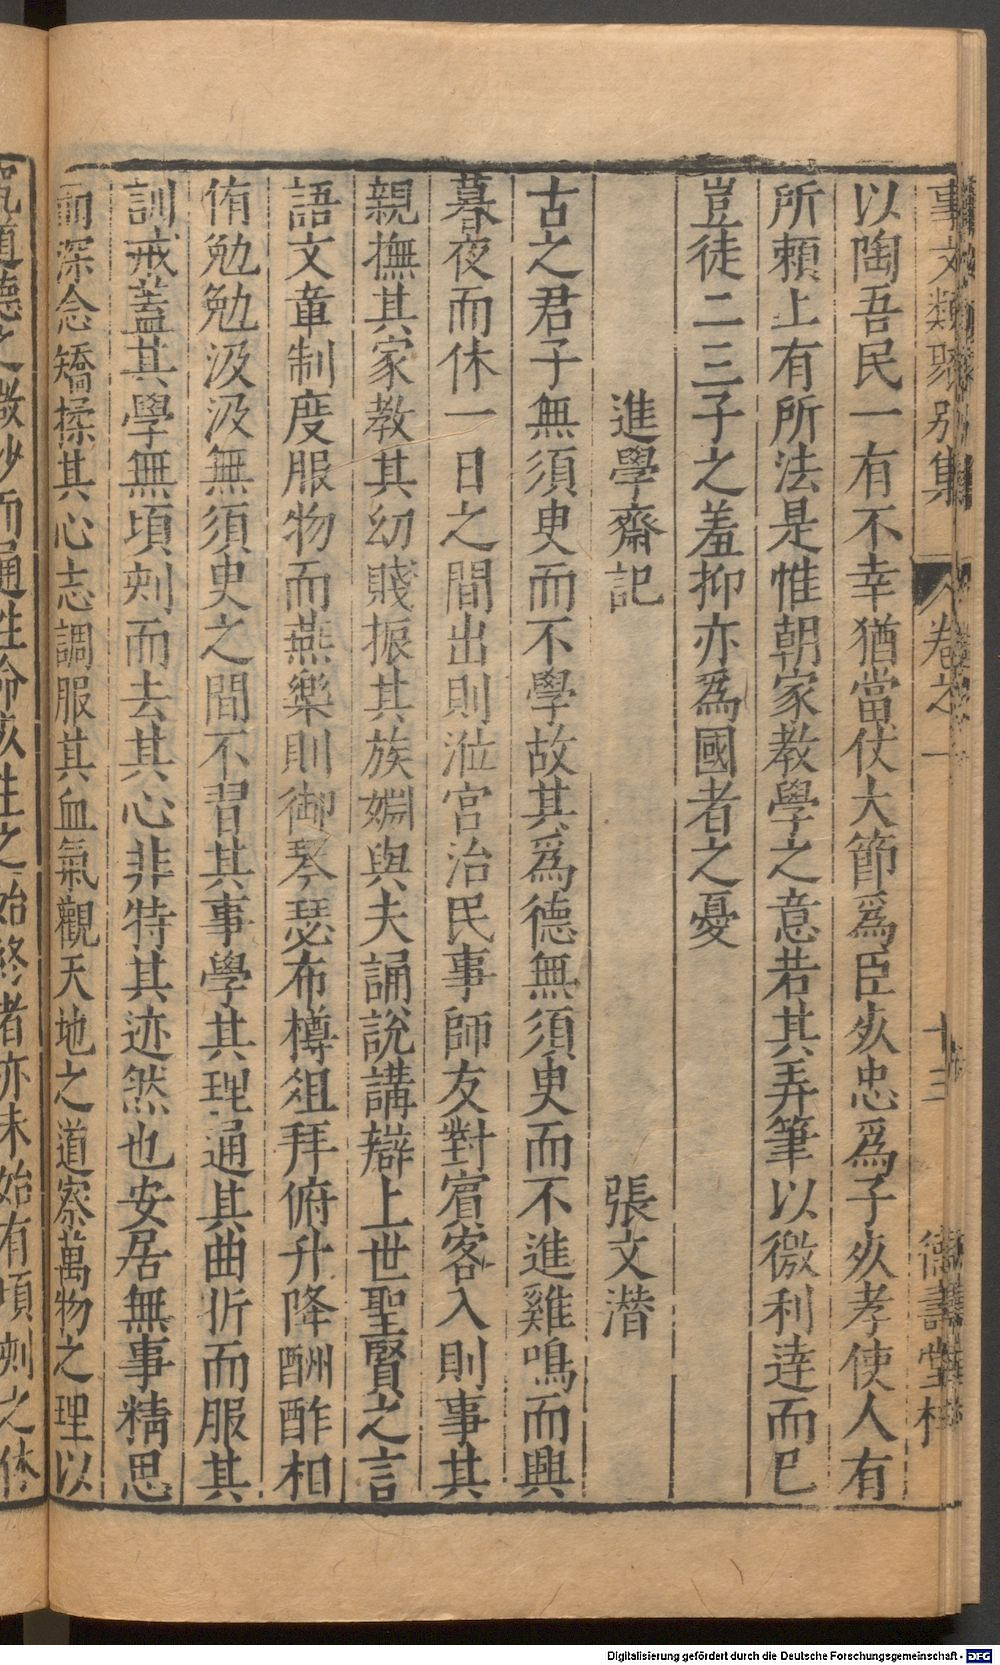 事文類聚別集 卷之一 十三 德壽堂梓
以陶吾民一有不幸猶當仗大節爲臣死忠爲子死孝使人有
所賴上有所法是惟朝家教學之意若其弄筆以徼利達而已
豈徒二三子之羞抑亦爲國者之憂
進學齋記 張文潛
古之君子無須臾而不學故其爲德無須臾而不進雞鳴而興
暮夜而休一日之間出則涖官治民事師友對賓客入則事其
親撫其家教其幼賤振其族婣與夫誦說講辯上世聖賢之言
語文章制度服物而燕樂則御琴瑟布樽俎拜俯升降酬酢相
侑勉勉汲汲無須臾之間不習其事學其理通其曲折而服其
訓戒蓋其學無頃刻而去其心非特其迹然也安居無事精思
而深念矯揉其心志調服其血氣觀天地之道察萬物之理以
道德之微妙而通性命死生之始終者亦未始有頃刻之休
Digitalisierung gefördert durch die Deutsche Forschungsgemeinschaft - DFG